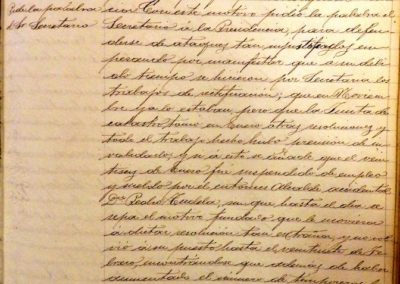 Pide la palabra
el Sr Secretario
cion Con este motivo pidió la palabra el
Secretario á la Presidencia, para defen-
derse de ataques tan em-
pezando por manifestar que á su debi-
do tiempo se hicieron por Secretaría los
trabajos de rectificación; que en Noviem-
bre ya lo estaban, pero que la Junta de
catastro tomó en Enero otras resoluciones y
todo el trabajo hecho hubo precision de in-
validarlo; y si a esto se añade que el vein-
tiseis de Enero fué suspendido de empleo
y sueldo por el entonces Alcalde accidental
Don Pedro sin que hasta el dia se
sepa el motivo fundado que le moviera
á dictar resolución tan extraña, y no vol-
vió á su puesto hasta el veintisiete de Fe-
brero, encontrándose que además de haber
aumentado el número de